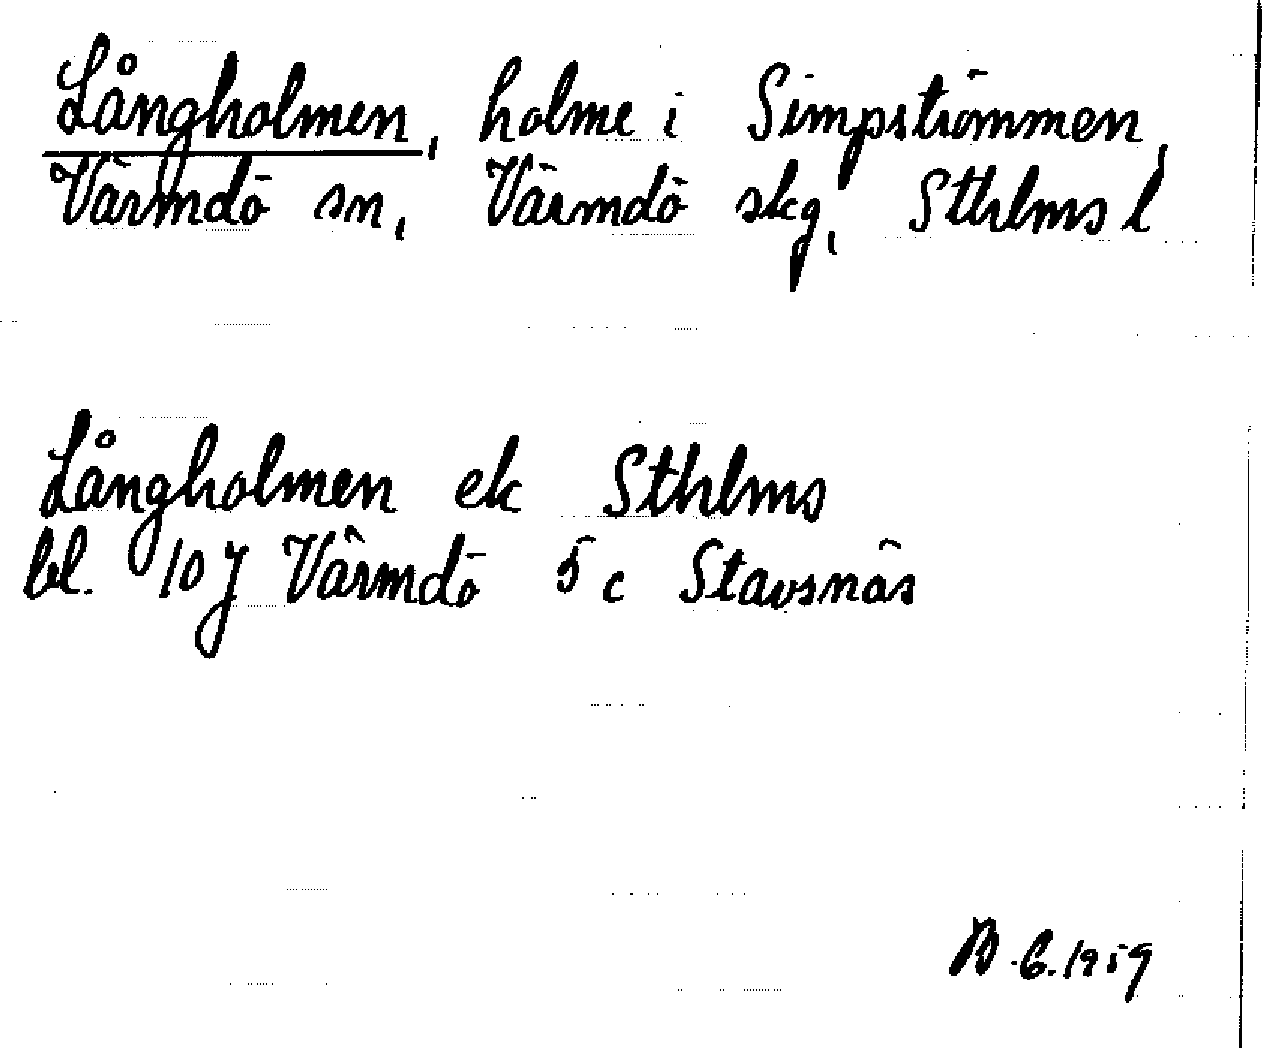 Långholmen, holme i Simpströmmen,
Värmdö sn, Värmdö skg, Sthlms l
Långholmen ek Sthlms
bl. 10 J Värmdö 5 c Stavsnäs
B.G. 1959